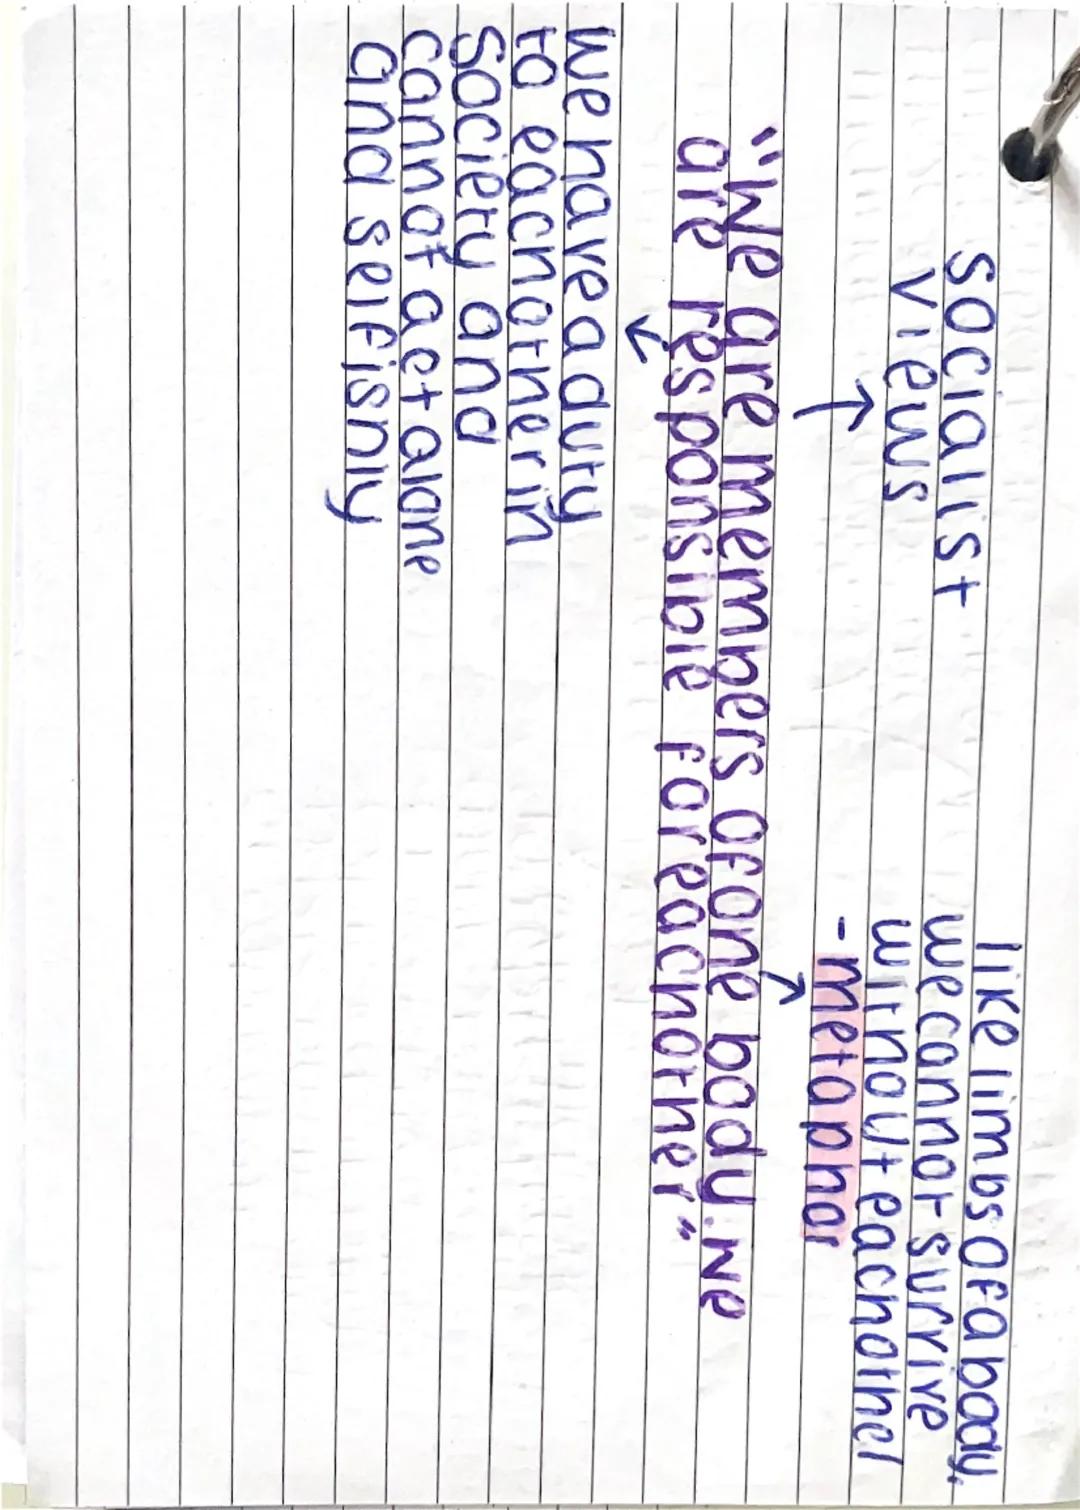 socialist
views
like limbs of a body,
we cannot survive
without eachother
- metaphor
"We are members of one body. We
are responsible for eachother"
We have a duty
to eachother in
society and
cannot act alone
and selfishly